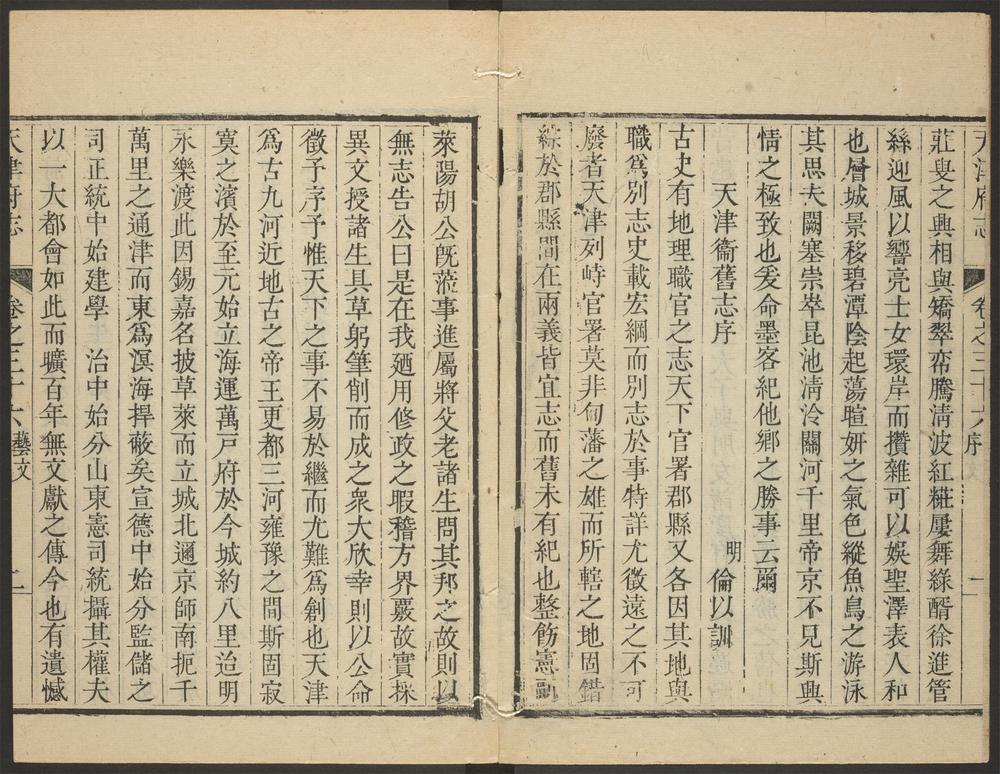 天津府志 卷之三十八 序 一
莊叟之興相與矯翠帟騰淸波紅糚屢舞綠醑徐進管
絲迎風以響亮士女環岸而攢雜可以娛聖澤表人和
也層城景移碧潭陰起蕩暄妍之氣色縱魚鳥之游泳
其思夫闕塞崇崒昆池淸泠關河千里帝京不見斯興
情之極致也爰命墨客紀他鄉之勝事云爾
天津衞舊志序 明 倫以訓
古史有地理職官之志天下官署郡縣又各因其地與
職爲別志史載宏綱而別志於事特詳尤徵遠之不可
廢者天津列峙官署莫非甸藩之雄而所轄之地固錯
綜於郡縣間在兩義皆宜志而舊未有紀也整飭憲副
萊陽胡公旣蒞事進屬將父老諸生問其邦之故則以
無志告公曰是在我廼用修政之暇稽方界覈故實採
異文授諸生具草躬筆削而成之衆大欣幸則以公命
徵予序予惟天下之事不易於繼而尤難爲創也天津
爲古九河近地古之帝王更都三河雍豫之間斯固寂
寞之濱於至元始立海運萬戸府於今城約八里迨明
永樂渡此因錫嘉名披草萊而立城北邇京師南扼千
萬里之通津而東爲溟海捍蔽矣宣德中始分監儲之
司正統中始建學 治中始分山東憲司統攝其權夫
以一大都會如此而曠百年無文獻之傳今也有遺憾
天津府志 卷之三十八 藝文 二